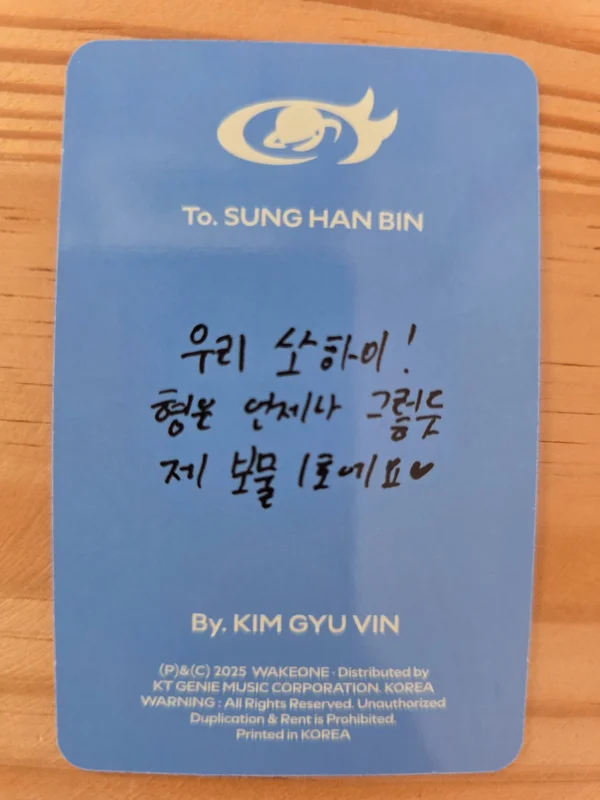 To. SUNG HAN BIN
우리 쏘하이!
형은 언제나 그렇듯
제 보물 1호에요♥
By. KIM GYU VIN
(P)&(C) 2025 WAKEONE · Distributed by
KT GENIE MUSIC CORPORATION. KOREA
WARNING : All Rights Reserved. Unauthorized
Duplication & Rent is Prohibited.
Printed in KOREA